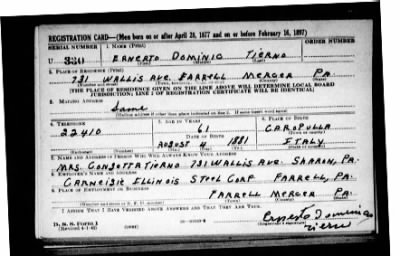 REGISTRATION CARD—(Men born on or after April 28, 1877 and on or before February 16, 1897)
SERIAL NUMBER 1. NAME (Print) ORDER NUMBER
U 320 ERNESTO DOMINIC TIERNO
2. PLACE OF RESIDENCE (Print)
731 WALLIS AVE. FARRELL MERCER PA.
[THE PLACE OF RESIDENCE GIVEN ON THE LINE ABOVE WILL DETERMINE LOCAL BOARD
JURISDICTION; LINE 2 OF REGISTRATION CERTIFICATE WILL BE IDENTICAL]
3. MAILING ADDRESS
Same
[Mailing address if other than place indicated on line 2. If same insert word same]
4. TELEPHONE 5. AGE IN YEARS 6. PLACE OF BIRTH
22410 61 CAROPULLA
DATE OF BIRTH
AUGUST 4 1881 ITALY
7. NAME AND ADDRESS OF PERSON WHO WILL ALWAYS KNOW YOUR ADDRESS
MRS. CONSETTA TIERNO 731 WALLIS AVE. SHARON, PA.
8. EMPLOYER'S NAME AND ADDRESS
CARNEIGIE ILLINOIS STEEL CORP. FARRELL, PA.
9. PLACE OF EMPLOYMENT OR BUSINESS
FARRELL MERCER PA.
I AFFIRM THAT I HAVE VERIFIED ABOVE ANSWERS AND THAT THEY ARE TRUE.
D. S. S. Form 1
(Revised 4-1-42) (over)
Ernesto Dominic
Tierno